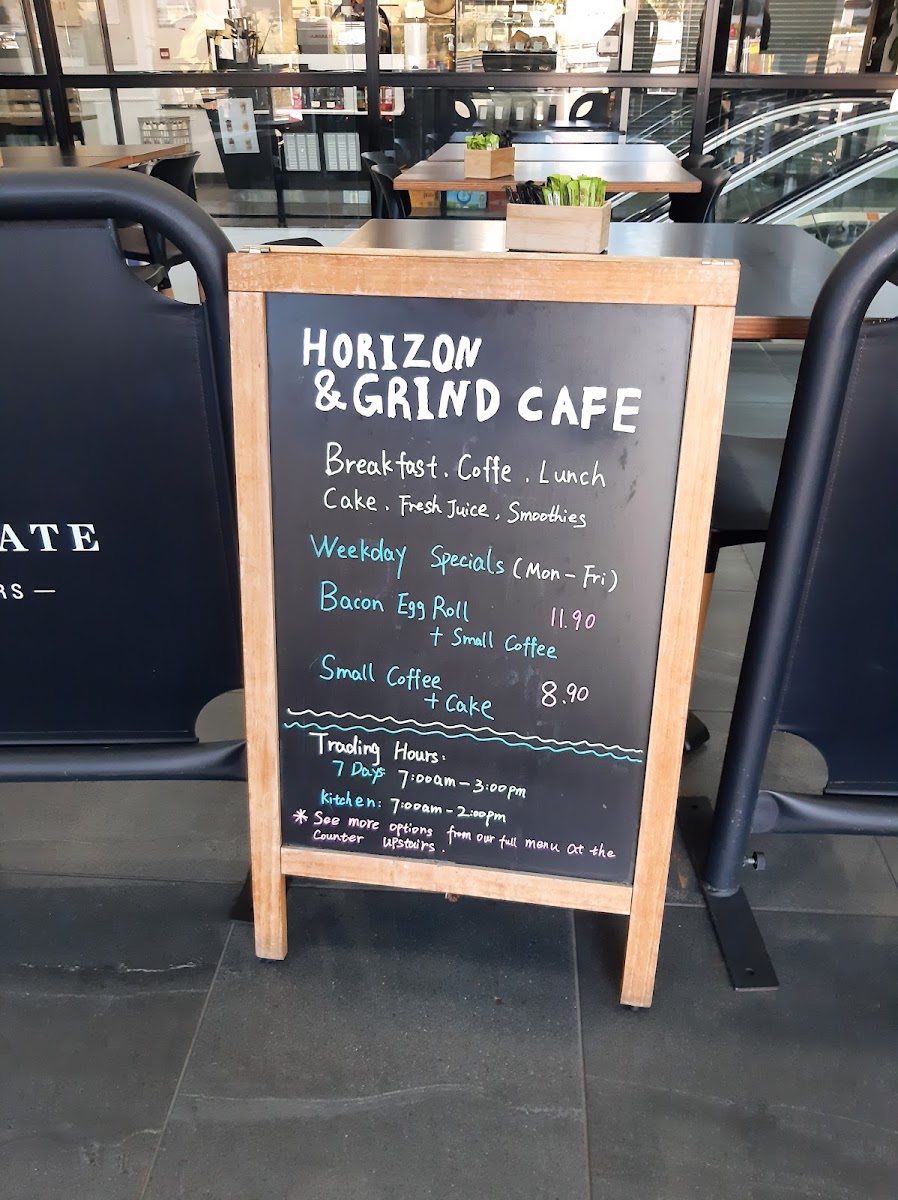 HORIZON
& GRIND CAFE
Breakfast . Coffe . Lunch
Cake . Fresh Juice , Smoothies
Weekday Specials (Mon - Fri)
Bacon Egg Roll 11.90
+ Small Coffee
Small Coffee
+ Cake 8.90
Trading Hours:
7 Days 7:00am - 3:00pm
Kitchen: 7:00am - 2:00pm
* See more options from our full menu at the
Counter upstairs.
ATE
RS —